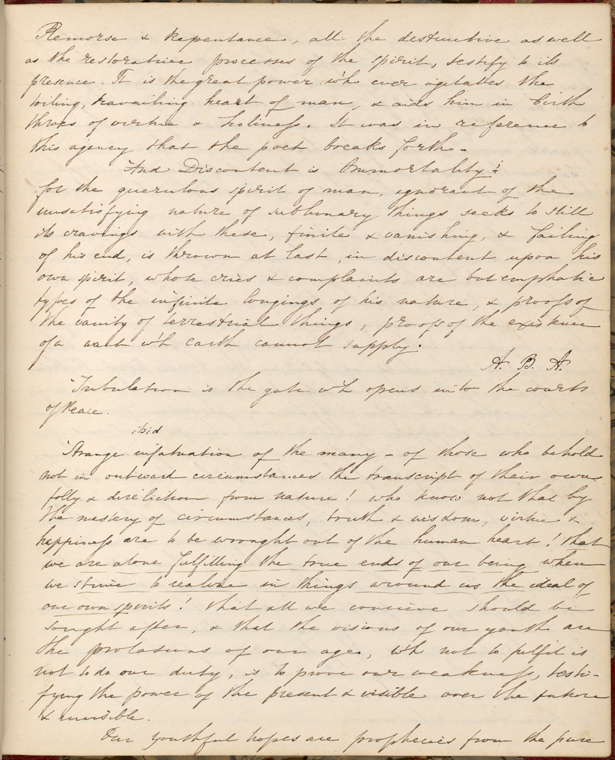 Remorse & Repentance, all the destructive as well
as the restorative processes of the spirit, testify to its
presence. It is the great power wh ever agitates the
toiling, travailing heart of man, & aids him in birth
throes of virtue & holiness. It was in reference to
this agency that the poet breaks forth -
And Discontent is Immortality!
for the querulous spirit of man, ignorant of the
unsatisfying nature of sublunary things seeks to still
its cravings with these, finite & vanishing, & failing
of his end, is thrown at last, in discontent upon his
own spirit, whose cries & complaints are but emphatic
types of the infinite longings of his nature, & proofs of
the vanity of terrestrial things, proofs of the existence
of a want wh earth cannot supply.
A. B. A.
Tribulation is the gate wh opens into the courts
of Peace.
ibid
Strange infatuation of the many - of those who behold
not in outward circumstances the transcript of their own
folly & dereliction from nature! who know not that by
the mastery of circumstances, truth & wisdom, virtue &
happiness are to be wrought out of the human heart! that
we are alone fulfilling the true ends of our being when
we strive to realize in things around us the ideal of
our own spirits! that all we conceive should be
sought after, & that the visions of our youth are
the of our age, wh not to fulfil is
not to do our duty, is to prove our weakness, testi-
fying the power of the present & visible over the future
& invisible.
Our youthful hopes are prophecies from the pure